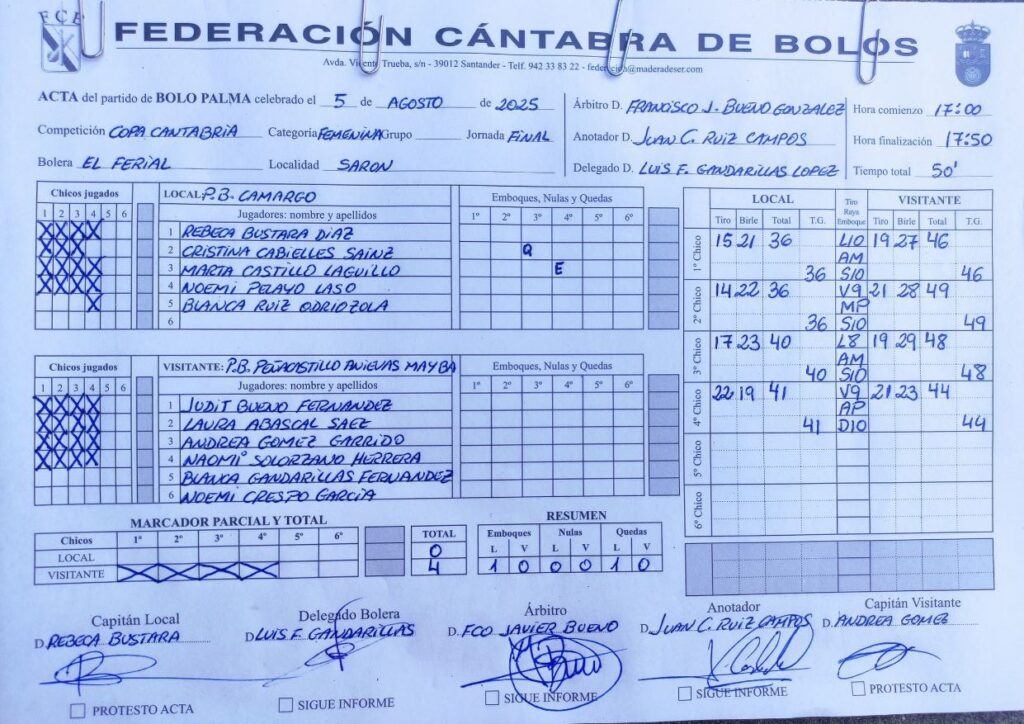 FCB
FEDERACIÓN CÁNTABRA DE BOLOS
Avda. Vicente Trueba, s/n - 39012 Santander - Telf. 942 33 83 22 - federacion@maderadeser.com
ACTA del partido de BOLO PALMA celebrado el 5 de AGOSTO de 2025
Competición COPA CANTABRIA Categoría FEMENINA Grupo Jornada FINAL
Bolera EL FERIAL Localidad SARON
Árbitro D. FRANCISCO J. BUENO GONZALEZ Hora comienzo 17:00
Anotador D. JUAN C. RUIZ CAMPOS Hora finalización 17:50
Delegado D. LUIS F. GANDARILLAS LOPEZ Tiempo total 50'
Chicos jugados LOCAL: P.B. CAMARGO Emboques, Nulas y Quedas
1 2 3 4 5 6 Jugadores: nombre y apellidos 1º 2º 3º 4º 5º 6º
X X X X 1 REBECA BUSTARA DIAZ
X X X 2 CRISTINA CABIELLES SAINZ Q
X X X X 3 MARTA CASTILLO LAGUILLO E
X X X X 4 NOEMI PELAYO LASO
X 5 BLANCA RUIZ ODRIOZOLA
6
Chicos jugados VISITANTE: P.B. PEÑACASTILLO ANIEVAS MAYBA Emboques, Nulas y Quedas
1 2 3 4 5 6 Jugadores: nombre y apellidos 1º 2º 3º 4º 5º 6º
X X X X 1 JUDIT BUENO FERNANDEZ
X X X X 2 LAURA ABASCAL SAEZ
X X X X 3 ANDREA GOMEZ GARRIDO
X X X X 4 NAOMI SOLORZANO HERRERA
5 BLANCA GANDARILLAS FERNANDEZ
6 NOEMI CRESPO GARCIA
LOCAL Tiro Raya Emboque VISITANTE
Tiro Birle Total T.G. Tiro Birle Total T.G.
1º Chico 15 21 36 L10 19 27 46
AM
36 S10 46
2º Chico 14 22 36 V9 21 28 49
MP
36 S10 49
3º Chico 17 23 40 L8 19 29 48
AM
40 S10 48
4º Chico 22 19 41 V9 21 23 44
AP
41 D10 44
5º Chico
6º Chico
MARCADOR PARCIAL Y TOTAL
Chicos 1º 2º 3º 4º 5º 6º TOTAL
LOCAL 0
VISITANTE X X X X 4
RESUMEN
Emboques Nulas Quedas
L V L V L V
1 0 0 0 1 0
Capitán Local Delegado Bolera Árbitro Anotador Capitán Visitante
D. REBECA BUSTARA D. LUIS F. GANDARILLAS D. FCO JAVIER BUENO D. JUAN C. RUIZ CAMPOS D. ANDREA GOMEZ
PROTESTO ACTA SIGUE INFORME SIGUE INFORME SIGUE INFORME PROTESTO ACTA